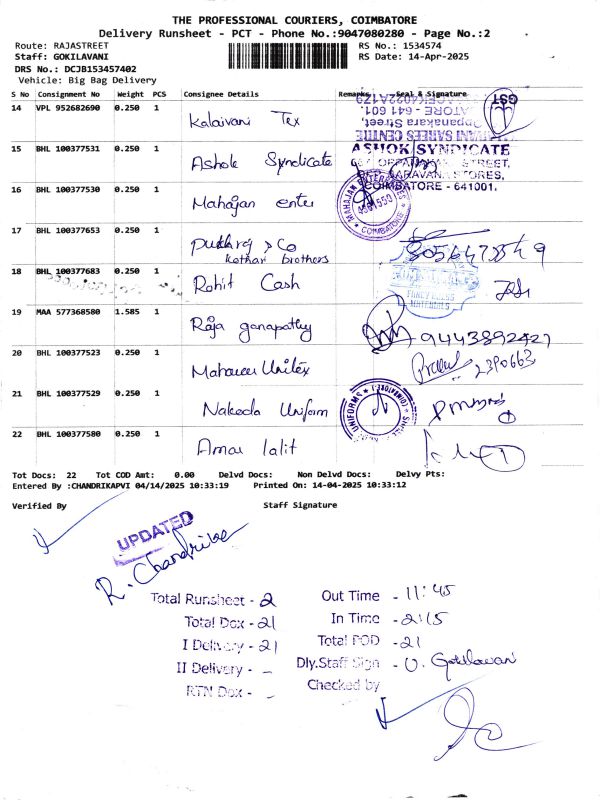 THE PROFESSIONAL COURIERS, COIMBATORE
Delivery Runsheet - PCT - Phone No.:9047080280 - Page No.:2
Route: RAJASTREET RS No.: 1534574
Staff: GOKILAVANI RS Date: 14-Apr-2025
DRS No.: DCJB153457402
Vehicle: Big Bag Delivery
S No Consignment No Weight PCS Consignee Details Remarks Seal & Signature
14 VPL 952682690 0.250 1 Kalaivani Tex
GST
15 BHL 100377531 0.250 1 Ashok Syndicate ASHOK SYNDICATE
STREET,
STORES,
COIMBATORE - 641001.
16 BHL 100377530 0.250 1 Mahajan enter MAHAJAN ENTERPRISES COIMBATORE
17 BHL 100377653 0.250 1
Kothari brothers
18 BHL 100377683 0.250 1 Rohit Cash
FANCY DRESS
MATERIALS
19 MAA 577368580 1.585 1 Raja ganapathy 9443892427
20 BHL 100377523 0.250 1 Mahaveer Unitex 2390663
21 BHL 100377529 0.250 1 Nakoda Uniform UNIFORMS
22 BHL 100377580 0.250 1 Amar lalit
Tot Docs: 22 Tot COD Amt: 0.00 Delvd Docs: Non Delvd Docs: Delvy Pts:
Entered By :CHANDRIKAPVI 04/14/2025 10:33:19 Printed On: 14-04-2025 10:33:12
Verified By Staff Signature
UPDATED
R. Chandrika
Total Runsheet - 2 Out Time - 11:45
Total Dox - 21 In Time - 2:15
I Delivery - 21 Total POD - 21
II Delivery - - Dly.Staff Sign - U. Gokilavani
RTN Dox - - Checked by